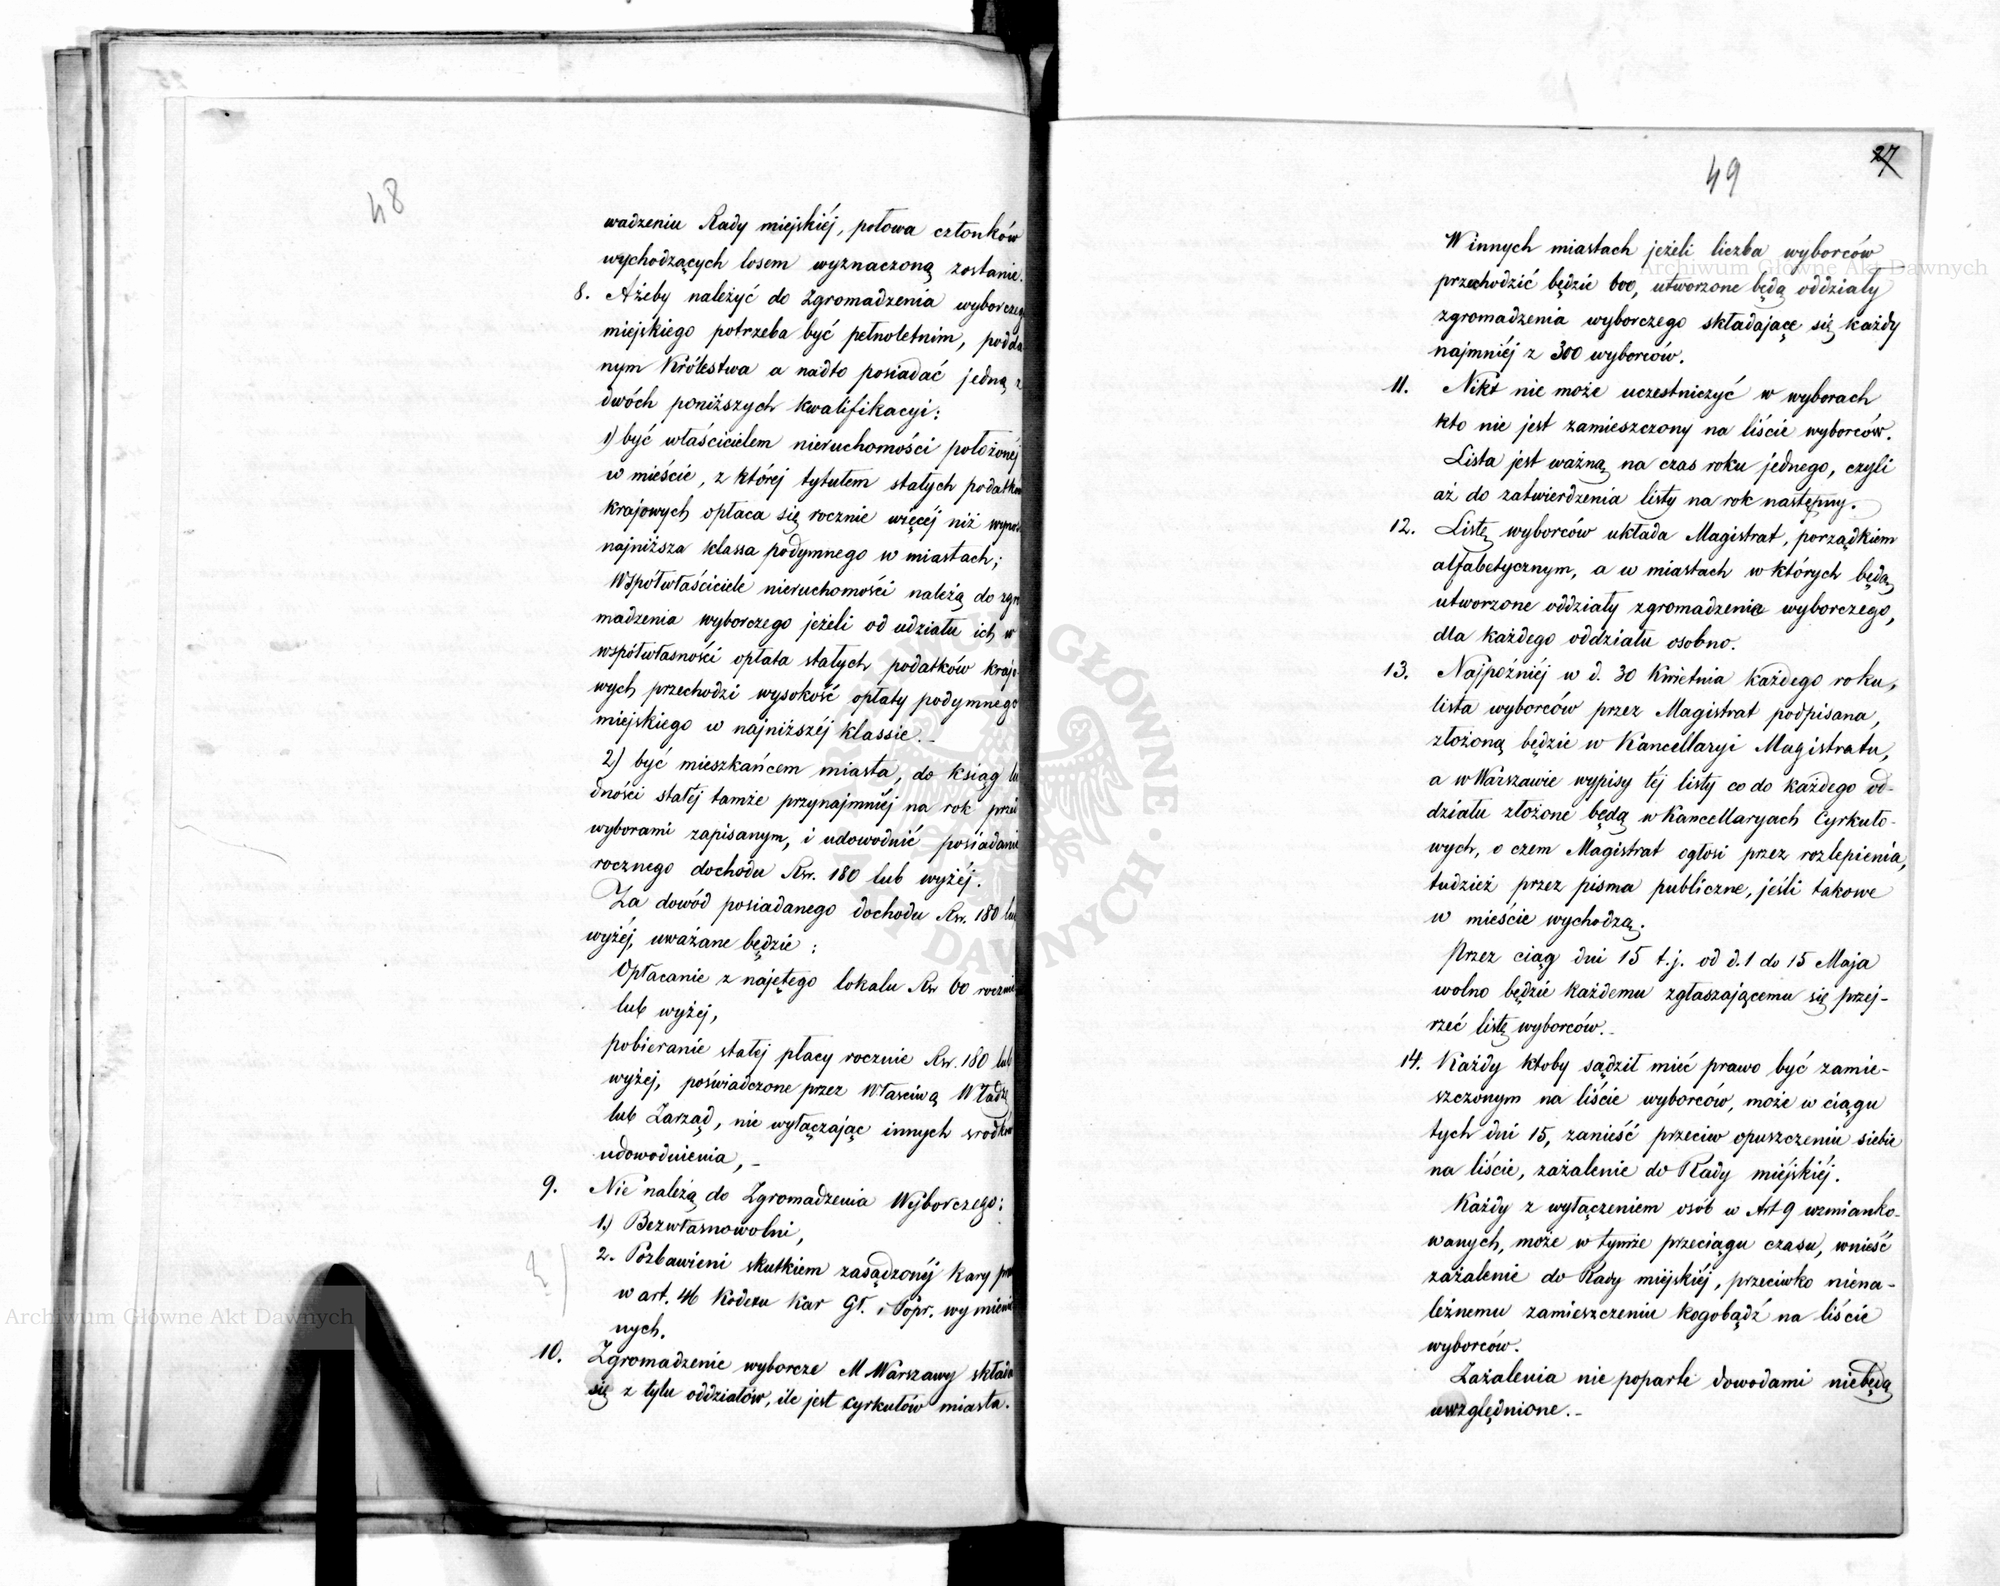 48
wadzeniu Rady miejskiéj, połowa członków
wychodzących losem wyznaczoną zostanie.
8. Ażeby należyć do Zgromadzenia wyborczeg
miejskiego potrzeba być pełnoletnim, podda
nym Królestwa a nadto posiadać jedną z
dwóch poniższych kwalifikacyi:
1) być właścicielem nieruchomości położonéj
w mieście, z któréj tytułem stałych podatków
krajowych opłaca się rocznie więcéj niż wynosi
najniższa klassa podymnego w miastach;
Współwłaściciele nieruchomości należą do zgro
madzenia wyborczego jeżeli od udziału ich w
współwłasności opłata stałych podatków krajo-
wych przechodzi wysokość opłaty podymnego
miejskiego w najniższéj klassie. –
2) być mieszkańcem miasta, do ksiąg lu
dności stałéj tamże przynajmniéj na rok przed
wyborami zapisanym, i udowodnić posiadanie
rocznego dochodu Rsr. 180 lub wyżéj.
Za dowód posiadanego dochodu Rsr. 180 lub
wyżéj, uważane będzie:
Opłacanie z najętego lokalu Rsr 60 rocznie
lub wyżej,
pobieranie stałej płacy rocznie Rsr. 180 lub
wyżej, poświadczone przez Właściwą Władzę
lub Zarząd, nie wyłączając innych srodków
udowodnienia, –
9. Nie należą do Zgromadzenia Wyborczego:
1.) Bezwłasnowolni,
2. Pozbawieni skutkiem zasądzonéj Kary praw
w art. 46 Kodexu Kar Gł. i Popr. wymienio
nych.
10. Zgromadzenie wyborcze M Warszawy składa
się z tylu oddziałów, ile jest cyrkułów miasta.
49
27
W innych miastach jeżeli liczba wyborców
przechodzić będzie 600, utworzone będą oddziały
zgromadzenia wyborczego składające się każdy
najmniéj z 300 wyborców.
11. Nikt nie może uczestniczyć w wyborach
kto nie jest zamieszczony na liście wyborców.
Lista jest ważną na czas roku jednego, czyli
aż do zatwierdzenia listy na rok następny.
12. Listę wyborców układa Magistrat, porządkiem
alfabetycznym, a w miastach w których będą
utworzone oddziały zgromadzenia wyborczego,
dla każdego oddziału osobno.
13. Najpóźniéj w d. 30 Kwietnia każdego roku,
lista wyborców przez Magistrat podpisana,
złożoną będzie w Kancellaryi Magistratu,
a w Warszawie wypisy téj listy co do każdego od-
działu złożone będą w Kancellaryach Cyrkuło-
wych, o czem Magistrat ogłosi przez rozlepienia,
tudzież przez pisma publiczne, jeśli takowe
w mieście wychodzą.
Przez ciąg dni 15 t.j. od d. 1 do 15 Maja
wolno będzie każdemu zgłaszającemu się przej-
rzeć listę wyborców. –
14. Każdy ktoby sądził mieć prawo być zamie-
szczonym na liście wyborców, może w ciągu
tych dni 15, zanieść przeciw opuszczeniu siebie
na liście, zażalenie do Rady miéjskiéj.
Każdy z wyłączeniem osób w Art 9 wzmianko-
wanych, może w tymże przeciągu czasu, wnieść
zażalenie do Rady miejskiéj, przeciwko niena-
leżnemu zamieszczeniu kogobądź na liście
wyborców.
Zażalenia nie poparte dowodami niebędą
uwzględnione. –
Archiwum Główne Akt Dawnych
Archiwum Główne Akt Dawnych